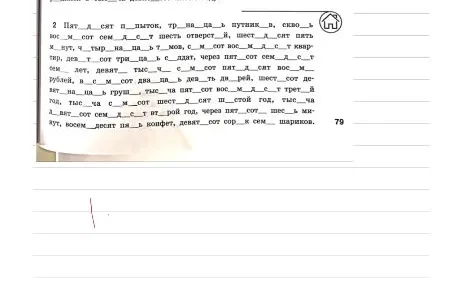 2 Пят__д__сят п__пыток, тр__на__ца__ь путник__в, скво__ь
вос__м__сот сем__д__с__т шесть отверст__й, шест__д__сят пять
м__нут, ч__тыр__на__ца__ь т__мов, с__м__сот вос__м__д__с__т квар-
тир, дев__т__сот три__ца__ь с__лдат, через пят__сот сем__д__с__т
сем__ лет, девят__ тыс__ч__ с__м__сот пят__д__сят вос__м__
рублей, в__с__м__сот два__ца__ь дев__ть дв__рей, шест__сот де-
вят__на__ца__ь груш__, тыс__ча пят__сот вос__м__д__с__т трет__й
год, тыс__ча с__м__сот шест__д__сят ш__стой год, тыс__ча
д__вят__сот сем__д__с__т вт__рой год, через пят__сот__ шес__ь ми-
нут, восем__десят пя__ь конфет, девят__сот сор__к сем__ шариков.
79